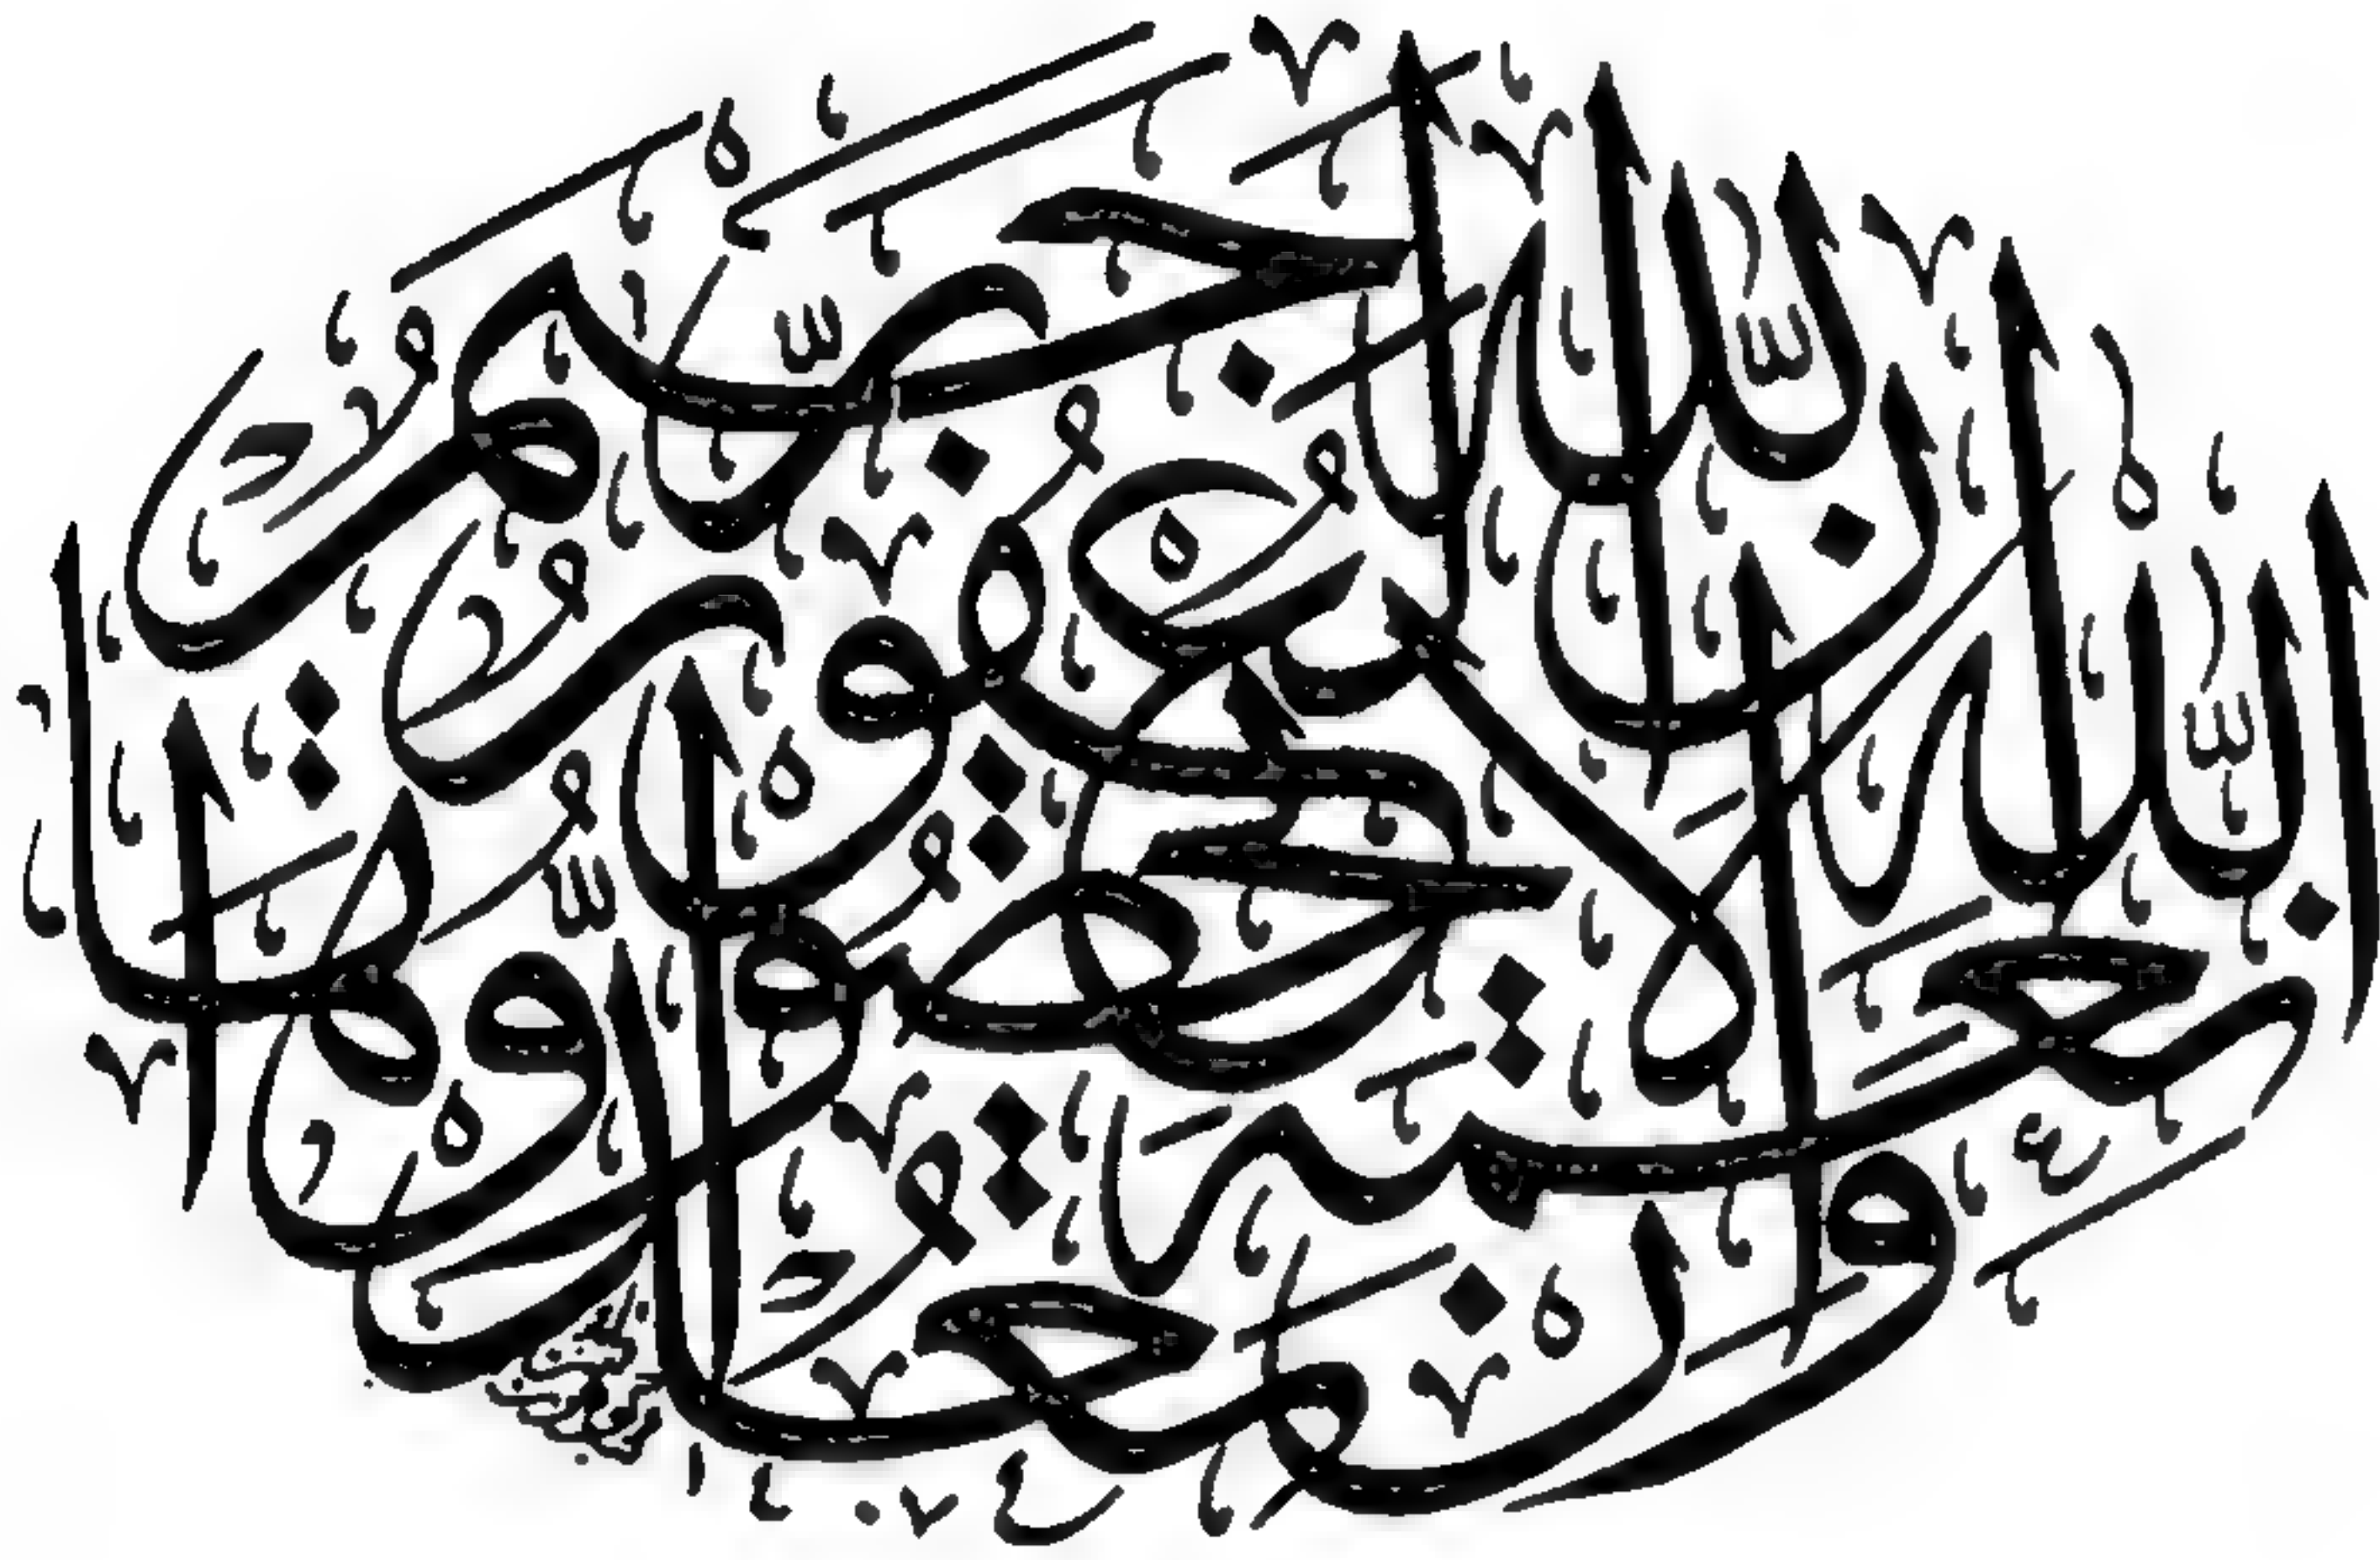 وَإِنْ تَعُدُّوا نِعْمَةَ اللَّهِ لَا تُحْصُوهَا إِنَّ اللَّهَ لَغَفُورٌ رَحِيمٌ